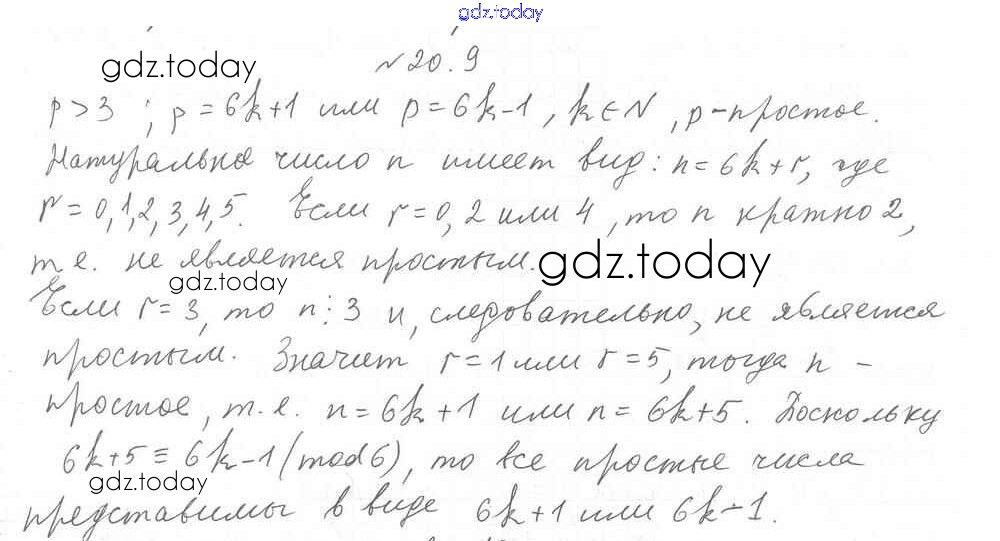 gdz.today
gdz.today
№20.9
p>3 ; p=6k+1 или p=6k-1, k∈N, p-простое.
Натуральное число n имеет вид: n=6k+r, где
r=0,1,2,3,4,5. Если r=0,2 или 4, то n кратно 2,
т.е. не является простым. gdz.today
gdz.today
Если r=3, то n⋮3 и, следовательно, не является
простым. Значит r=1 или r=5, тогда n -
простое, т.е. n=6k+1 или n=6k+5. Поскольку
6k+5≡6k-1(mod6), то все простые числа
gdz.today
представимы в виде 6k+1 или 6k-1.